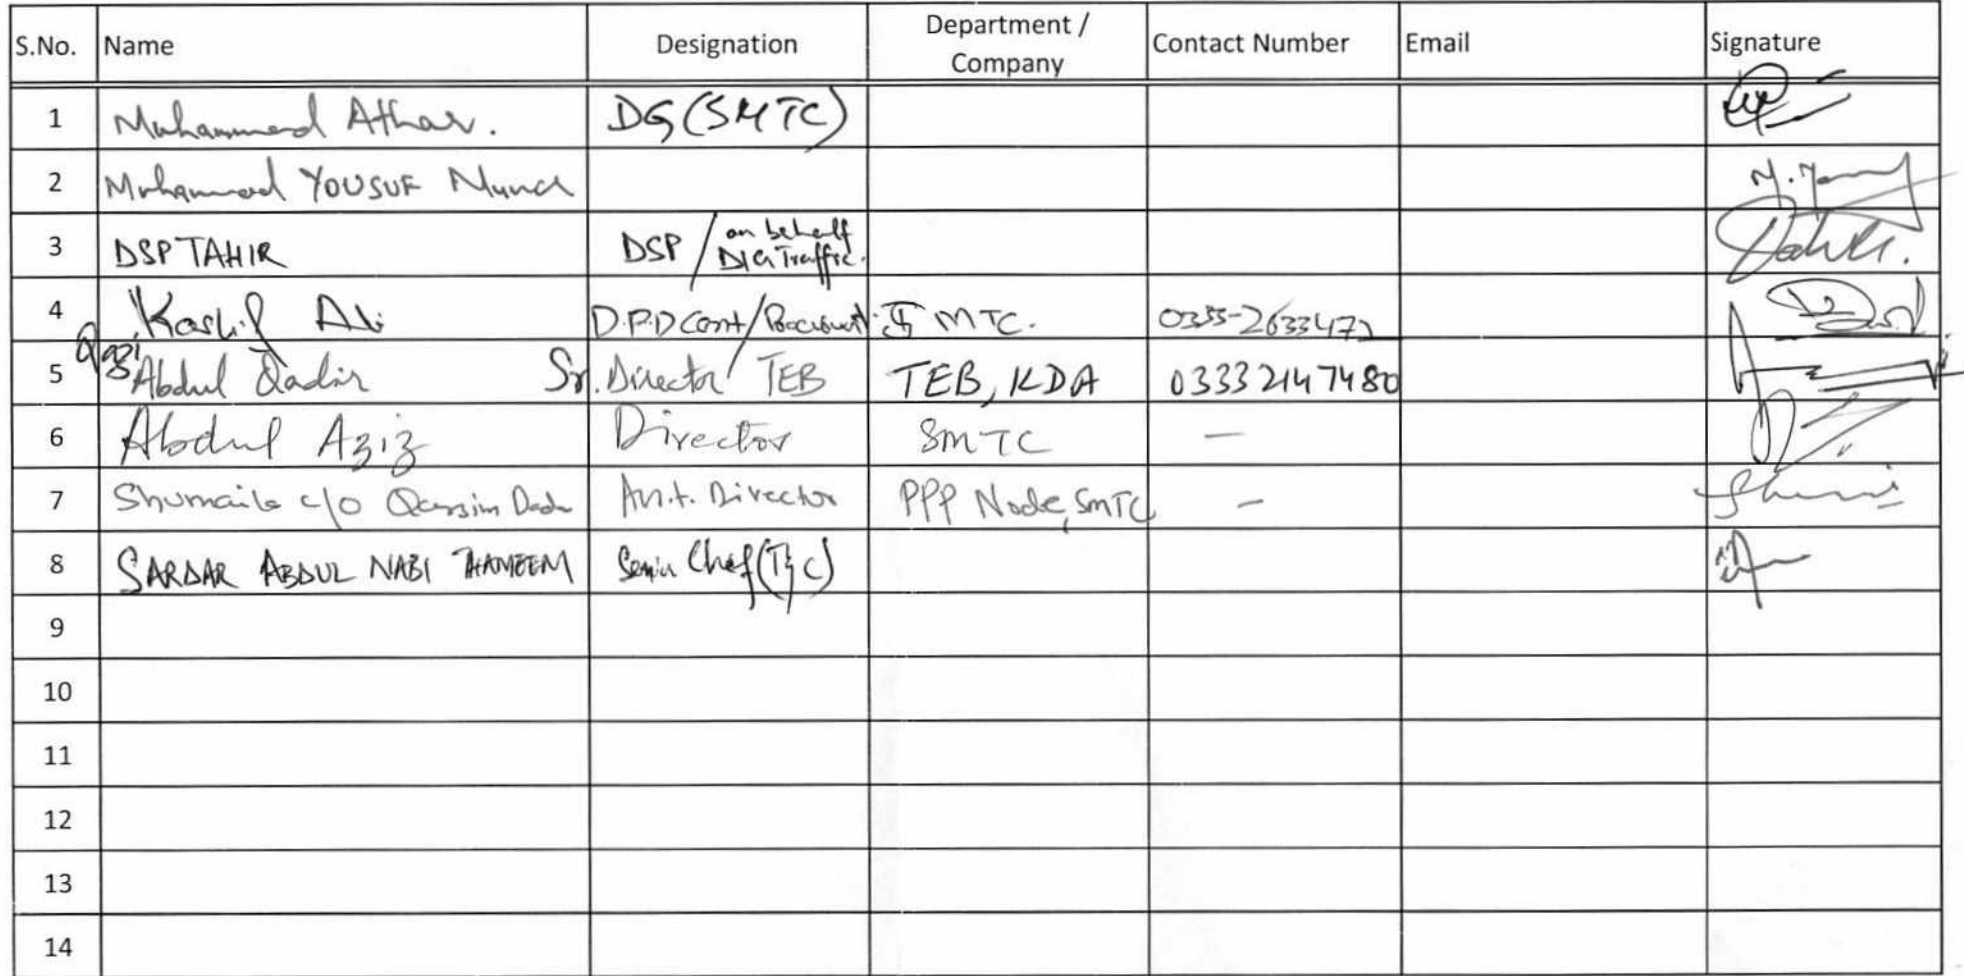 S.No. Name Designation Department / Company Contact Number Email Signature
1 Muhammad Athar. DG (SMTC)
2 Muhammad YOUSUF
3 DSP TAHIR DSP / on behalf DIG Traffic.
4 Kashif Ali D.P.D Cont/ MTC. 0355-263347
5 Qazi Abdul Qadir Sr. Director TEB TEB, KDA 03332147480
6 Abdul Aziz Director SMTC —
7 Shumaila c/o Qassim Dada Asst. Director PPP Node, SMTC —
8 SARDAR ABDUL NABI Senior Chef (T&C)
9
10
11
12
13
14